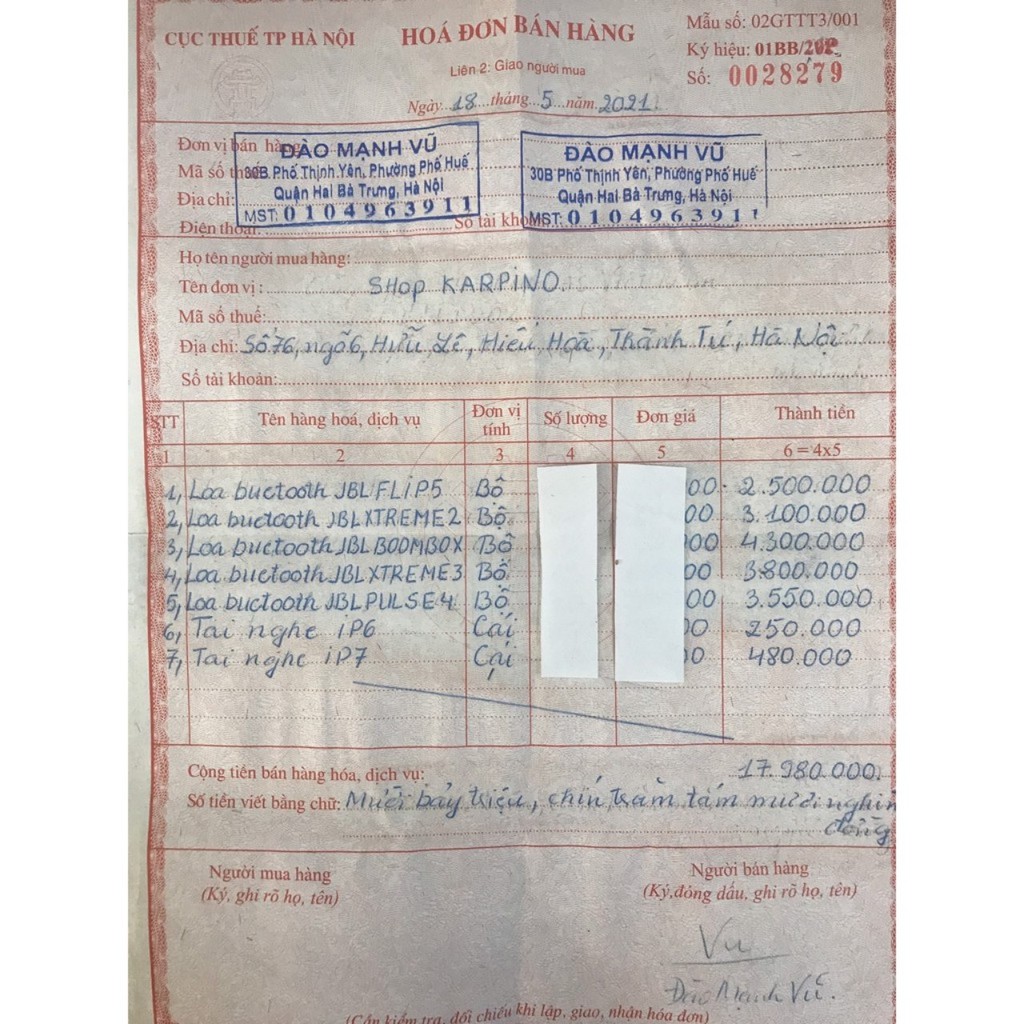 CỤC THUẾ TP HÀ NỘI
HOÁ ĐƠN BÁN HÀNG
Liên 2: Giao người mua
Ngày 18 tháng 5 năm 2021
Mẫu số: 02GTTT3/001
Ký hiệu: 01BB/
Số: 0028279
Đơn vị bán hàng
Mã số thuế
Địa chỉ:
Điện thoại:
Số tài khoản
ĐÀO MẠNH VŨ
30B Phố Thịnh Yên, Phường Phố Huế
Quận Hai Bà Trưng, Hà Nội
MST: 0104963911
ĐÀO MẠNH VŨ
30B Phố Thịnh Yên, Phường Phố Huế
Quận Hai Bà Trưng, Hà Nội
MST: 0104963911
Họ tên người mua hàng:
Tên đơn vị: SHOP KARPINO
Mã số thuế:
Địa chỉ: Số 76, ngõ 6, Hữu Lê, Hiếu Hoà, Thành Tú, Hà Nội
Số tài khoản:
STT Tên hàng hoá, dịch vụ Đơn vị tính Số lượng Đơn giá Thành tiền
1 2 3 4 5 6 = 4x5
1, Loa buctooth JBL FLIP5 Bộ 00 2.500.000
2, Loa buctooth JBL XTREME2 Bộ 00 3.100.000
3, Loa buctooth JBL BOOMBOX Bộ 00 4.300.000
4, Loa buctooth JBL XTREME3 Bộ 00 3.800.000
5, Loa buctooth JBL PULSE4 Bộ 00 3.550.000
6, Tai nghe iP6 Cái 00 250.000
7, Tai nghe iP7 Cái 0 480.000
Cộng tiền bán hàng hóa, dịch vụ: 17.980.000
Số tiền viết bằng chữ: Mười bảy triệu, chín trăm tám mươi nghìn
đồng
Người mua hàng
(Ký, ghi rõ họ, tên)
Người bán hàng
(Ký, đóng dấu, ghi rõ họ, tên)
Vũ
Đào Mạnh Vũ.
(Cần kiểm tra, đối chiếu khi lập, giao, nhận hóa đơn)